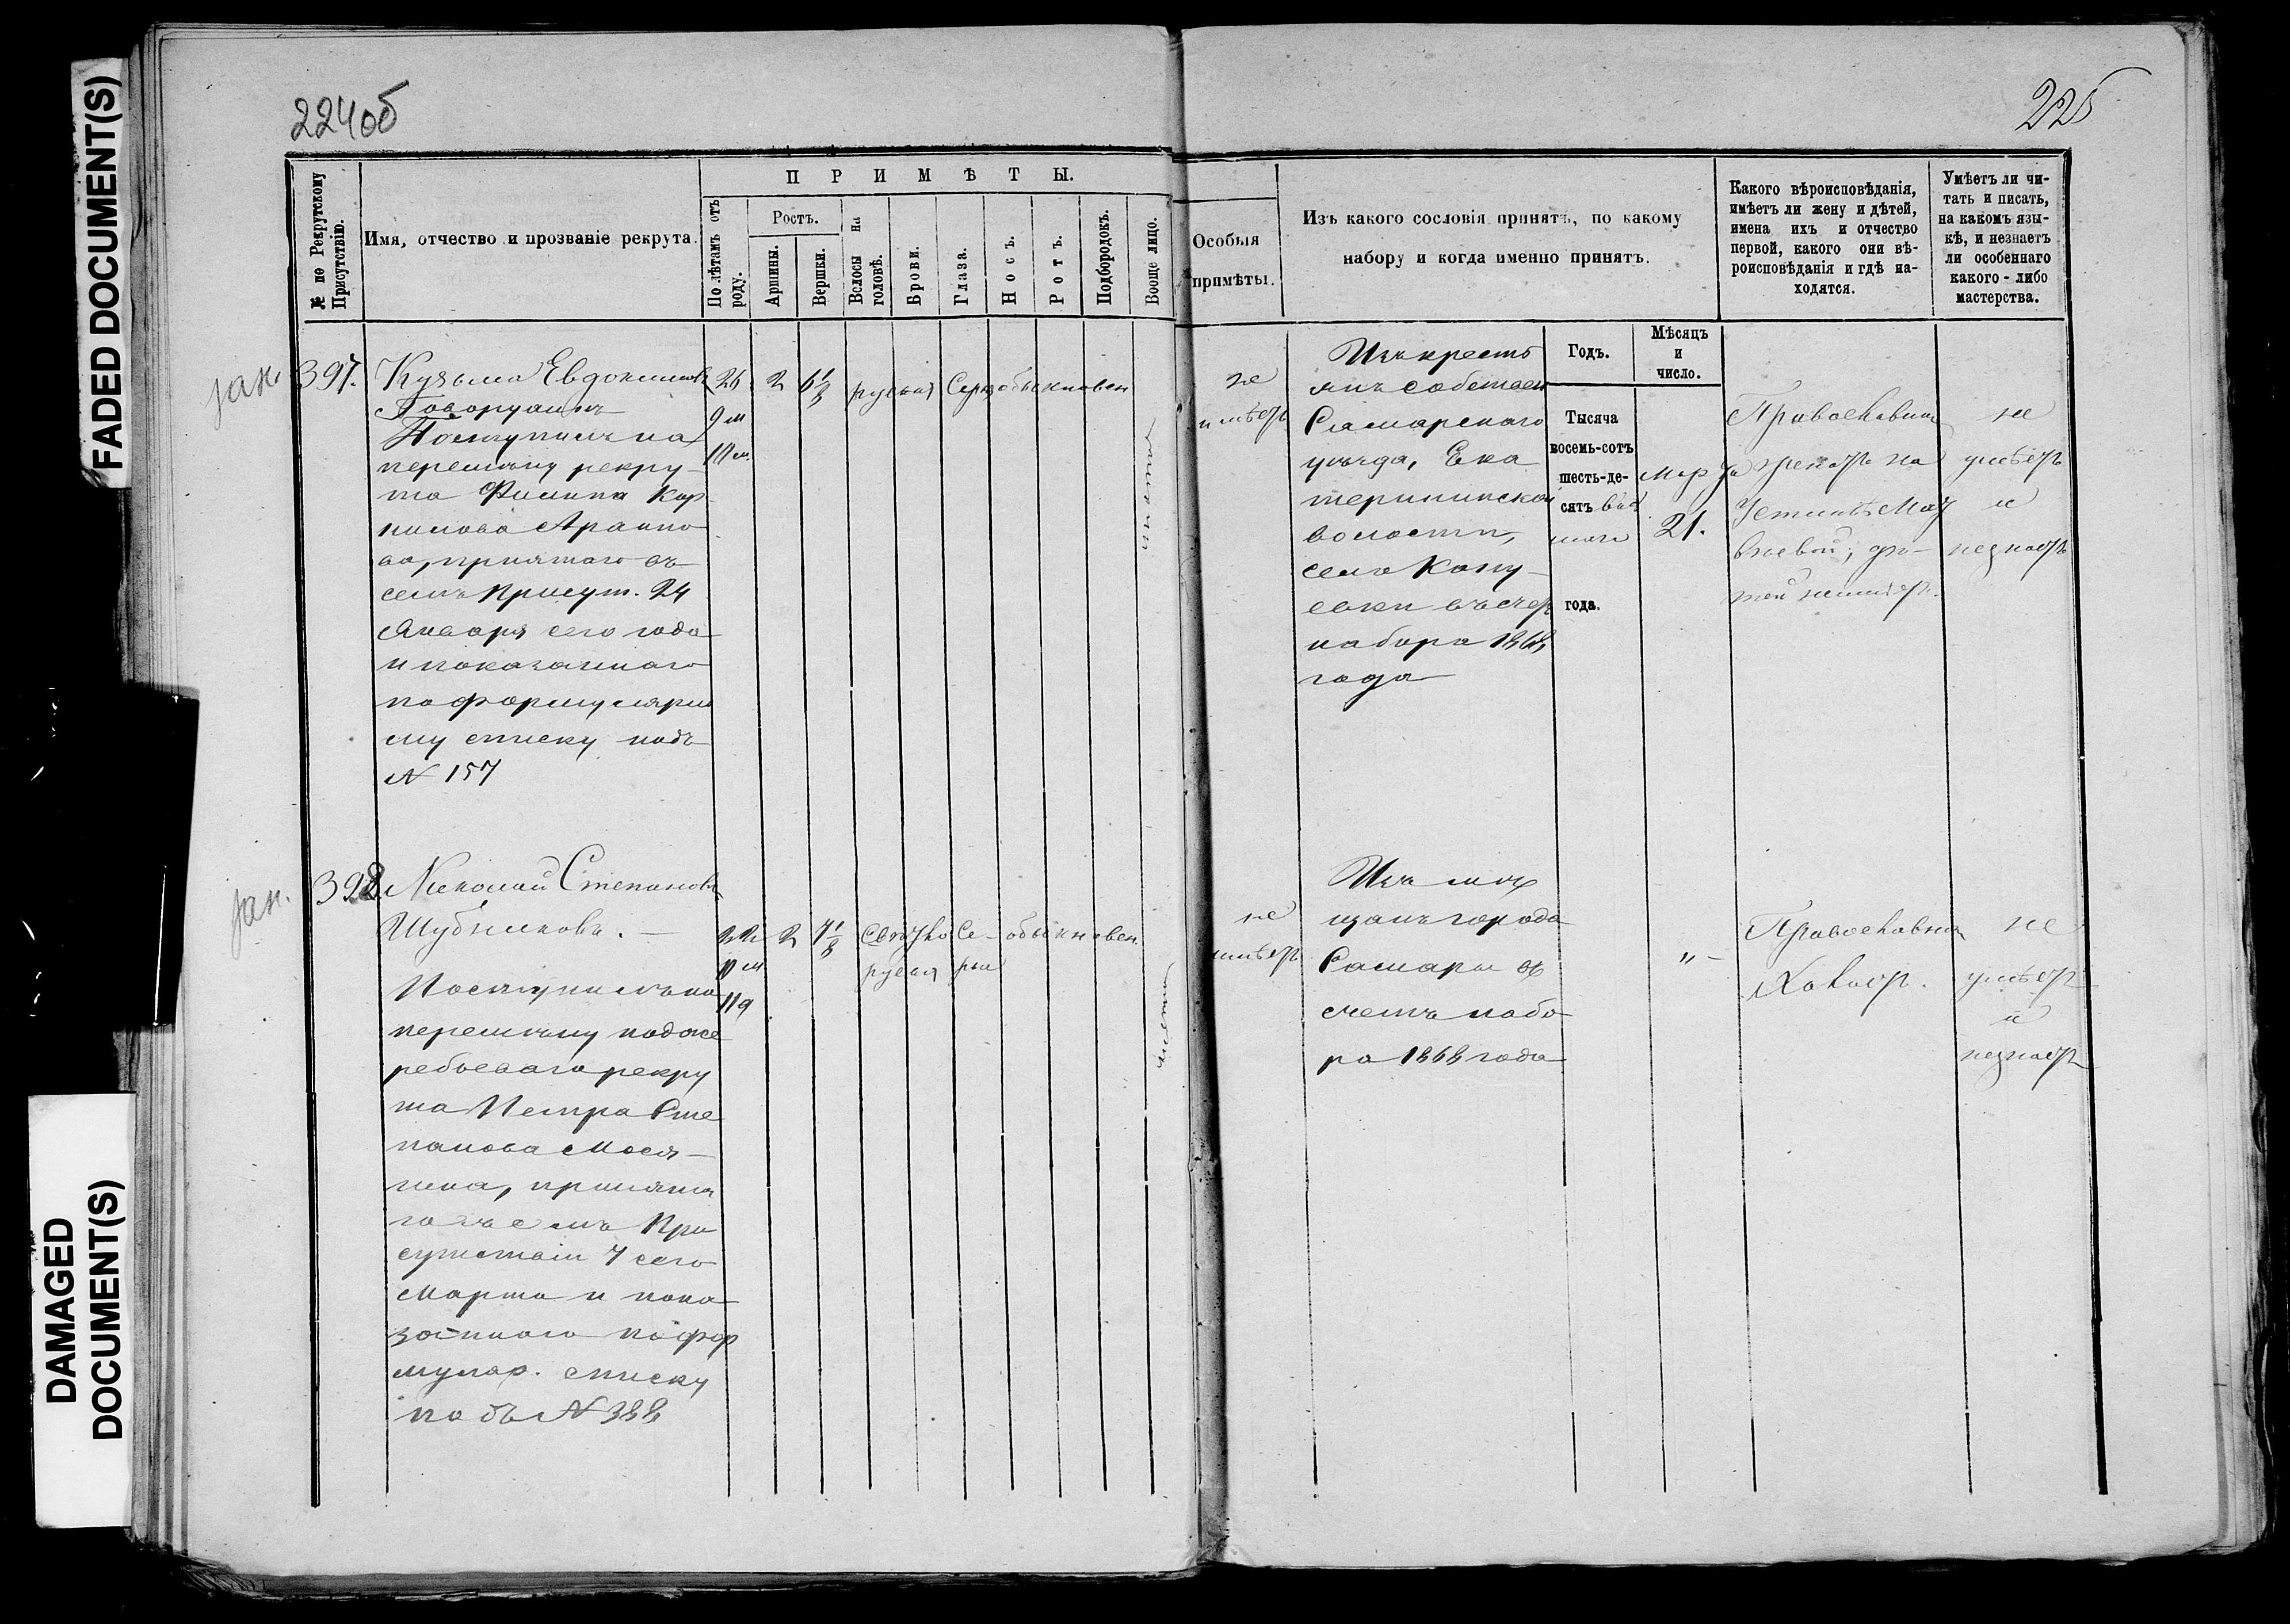 FADED DOCUMENT(S)
DAMAGED
DOCUMENT(S)
224об
225
№ по Рекрутскому
Присутствію.
Имя, отчество и прозваніе рекрута.
ПРИМѢТЫ.
По лѣтамъ отъ
роду.
Ростъ.
Аршины.
Вершки.
Волосы на
головѣ.
Брови.
Глаза.
Носъ.
Ротъ.
Подбородокъ.
Вообще лицо.
Особыя
примѣты.
Изъ какого сословія принятъ, по какому
набору и когда именно принятъ.
Какого вѣроисповѣданія,
имѣетъ ли жену и дѣтей,
имена ихъ и отчество
первой, какого они вѣ-
роисповѣданія и гдѣ на-
ходятся.
Умѣетъ ли чи-
тать и писать,
на какомъ язы-
кѣ, и незнаетъ
ли особеннаго
какого-либо
мастерства.
Годъ.
Мѣсяцъ
и
число.
397.
Кузьма Евдокимовъ
Поступилъ на
перемѣну рекру-
та Филипа Кар-
пова
ва, принятаго въ
семъ Присут. 24
Января сего года
и показаннаго
по формулярно
му списку подъ
N 157
26
9 м
2
6 1/8
русыя
Серы
обыкновен
чистое
не
имѣетъ
Изъ кресть
янъ собствен
Самарскаго
уѣзда, Ека
терининской
волости,
села
въ счетъ
набора 1868
года
Тысяча
восемь-сотъ
шесть-де-
сятъ
года.
Мар
21.
Православнаго
женатъ на
Устиньѣ
дѣ-
тей неимѣетъ.
не
умѣетъ
и
незнаетъ
398.
Николай Степановъ
Шубниковъ. —
Поступилъ на
перемѣну подже
ребьеваго рекру
та Петра Сте
панова Мося-
гина, принята
го въ семъ При
сутствіи 7 сего
Марта и пока
заннаго по фор
муляр. списку
подъ N 388
22
10 м
11 д
2
7 1/8
Свѣтло
русыя
Се-
рыя
обыкновен
чистое
не
имѣетъ
Изъ мѣ
щанъ города
Самары въ
счетъ набо
ра 1868 года
" -
Православнаго
Холостъ.
не
умѣетъ
и
незнаетъ